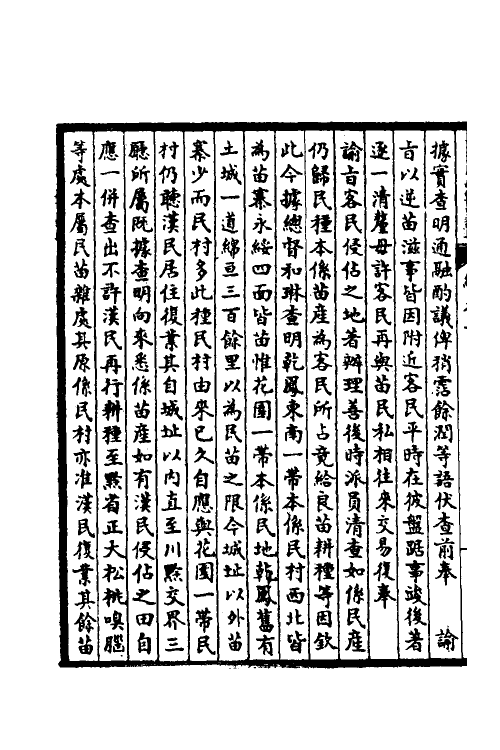 據實查明通融酌議俾稍霑餘潤等語伏查前奉　諭
旨以逆苗滋事皆因附近客民平時在彼盤踞事竣後著
逐一清釐毋許客民再與苗民私相往來交易復奉
諭旨客民侵佔之地著辦理善後時派員清查如係民產
仍歸民種本係苗產為客民所占竟給良苗耕種等因欽
此今據總督和琳查明乾鳳東南一帶本係民村西北皆
為苗寨永綏四面皆苗惟花園一帶本係民地乾鳳舊有
土城一道綿亘三百餘里以為民苗之限今城址以外苗
寨少而民村多此種民村由來已久自應與花園一帶民
村仍聽漢民居住復業其自城址以內直至川黔交界三
廳所屬既據查明向來悉係苗產如有漢民侵佔之田自
應一併查出不許漢民再行耕種至黔省正大松桃嗅腦
等處本屬民苗雜處其原係民村亦准漢民復業其餘苗